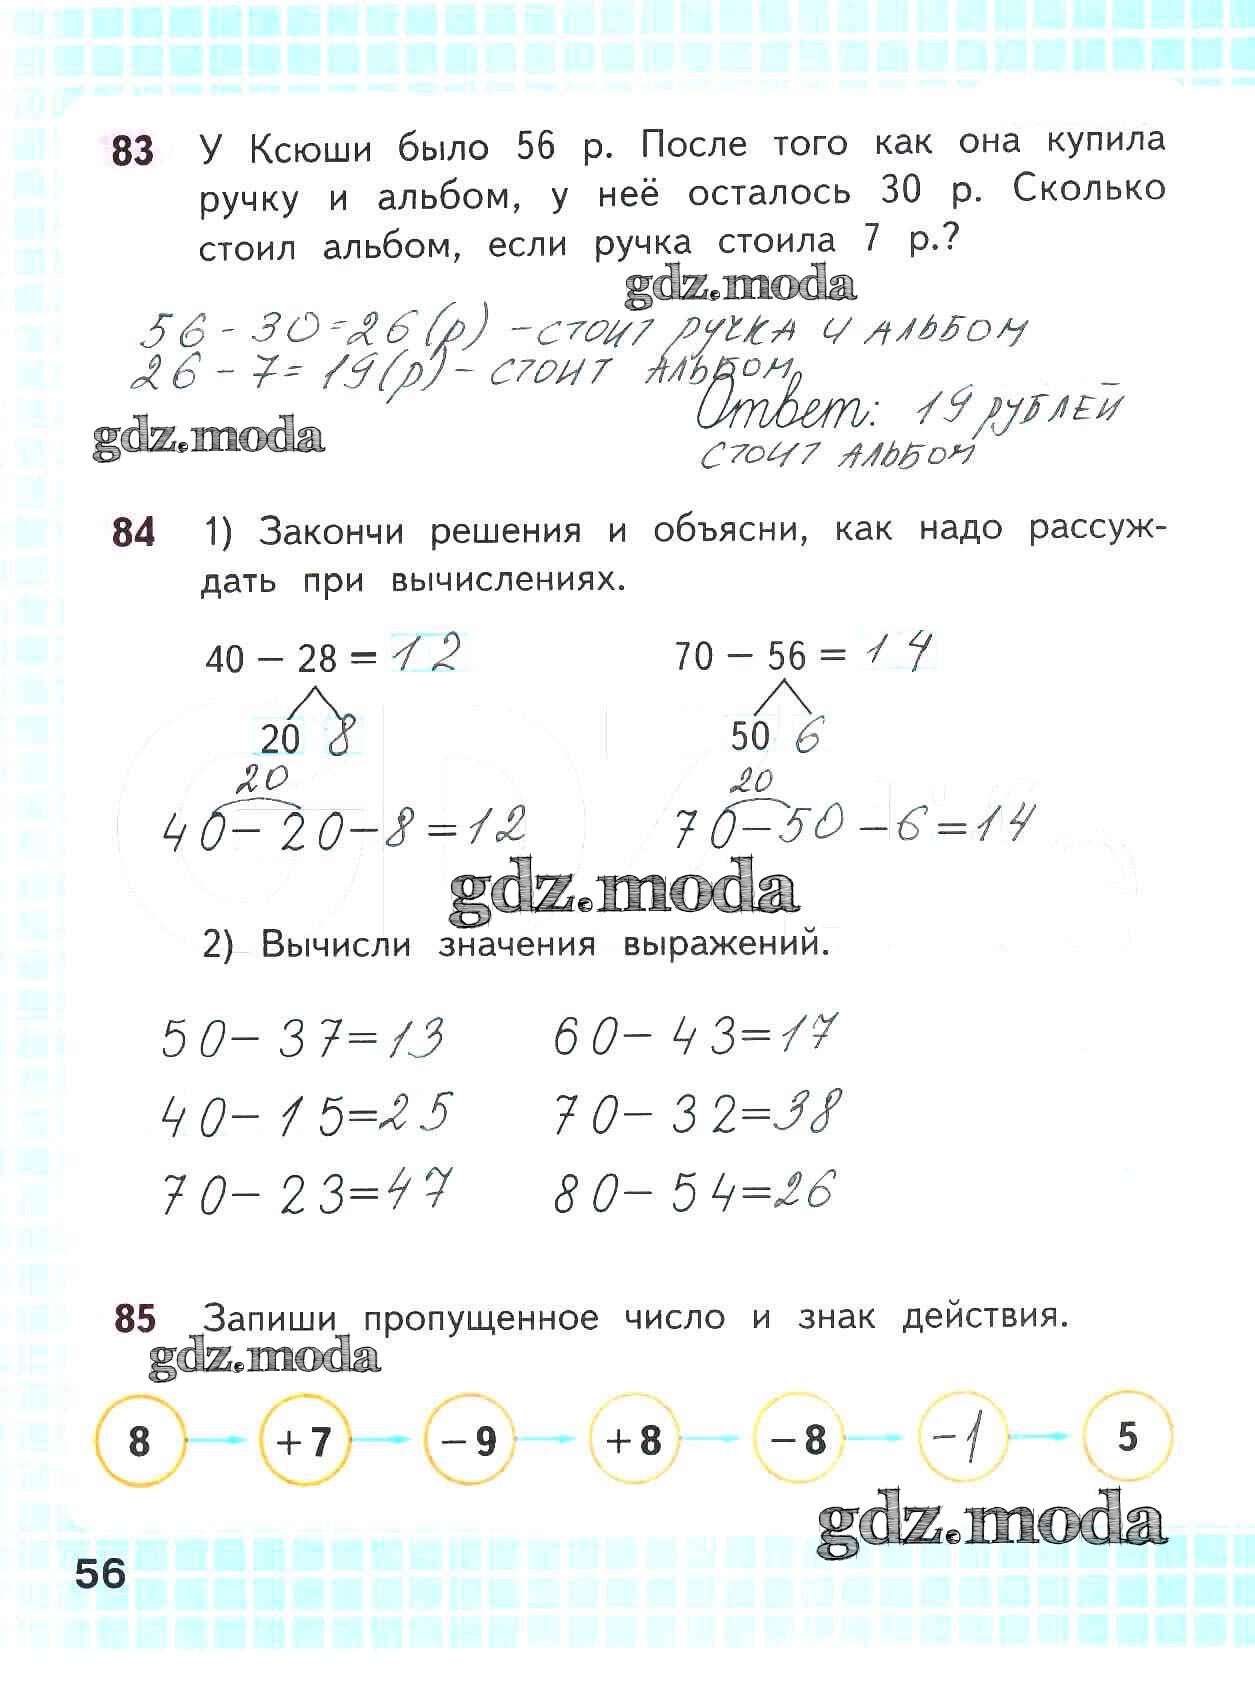 83 У Ксюши было 56 р. После того как она купила
ручку и альбом, у неё осталось 30 р. Сколько
стоил альбом, если ручка стоила 7 р.?
gdz.moda
56 - 30 = 26 (р) - стоит ручка и альбом
26 - 7 = 19 (р) - стоит альбом
Ответ: 19 рублей
gdz.moda
стоит альбом
84 1) Закончи решения и объясни, как надо рассуж-
дать при вычислениях.
40 − 28 = 12 70 − 56 = 14
20 8 50 6
20 20
40 − 20 − 8 = 12 70 − 50 − 6 = 14
gdz.moda
2) Вычисли значения выражений.
50 − 37 = 13 60 − 43 = 17
40 − 15 = 25 70 − 32 = 38
70 − 23 = 47 80 − 54 = 26
85 Запиши пропущенное число и знак действия.
gdz.moda
8 +7 −9 +8 −8 −1 5
gdz.moda
56